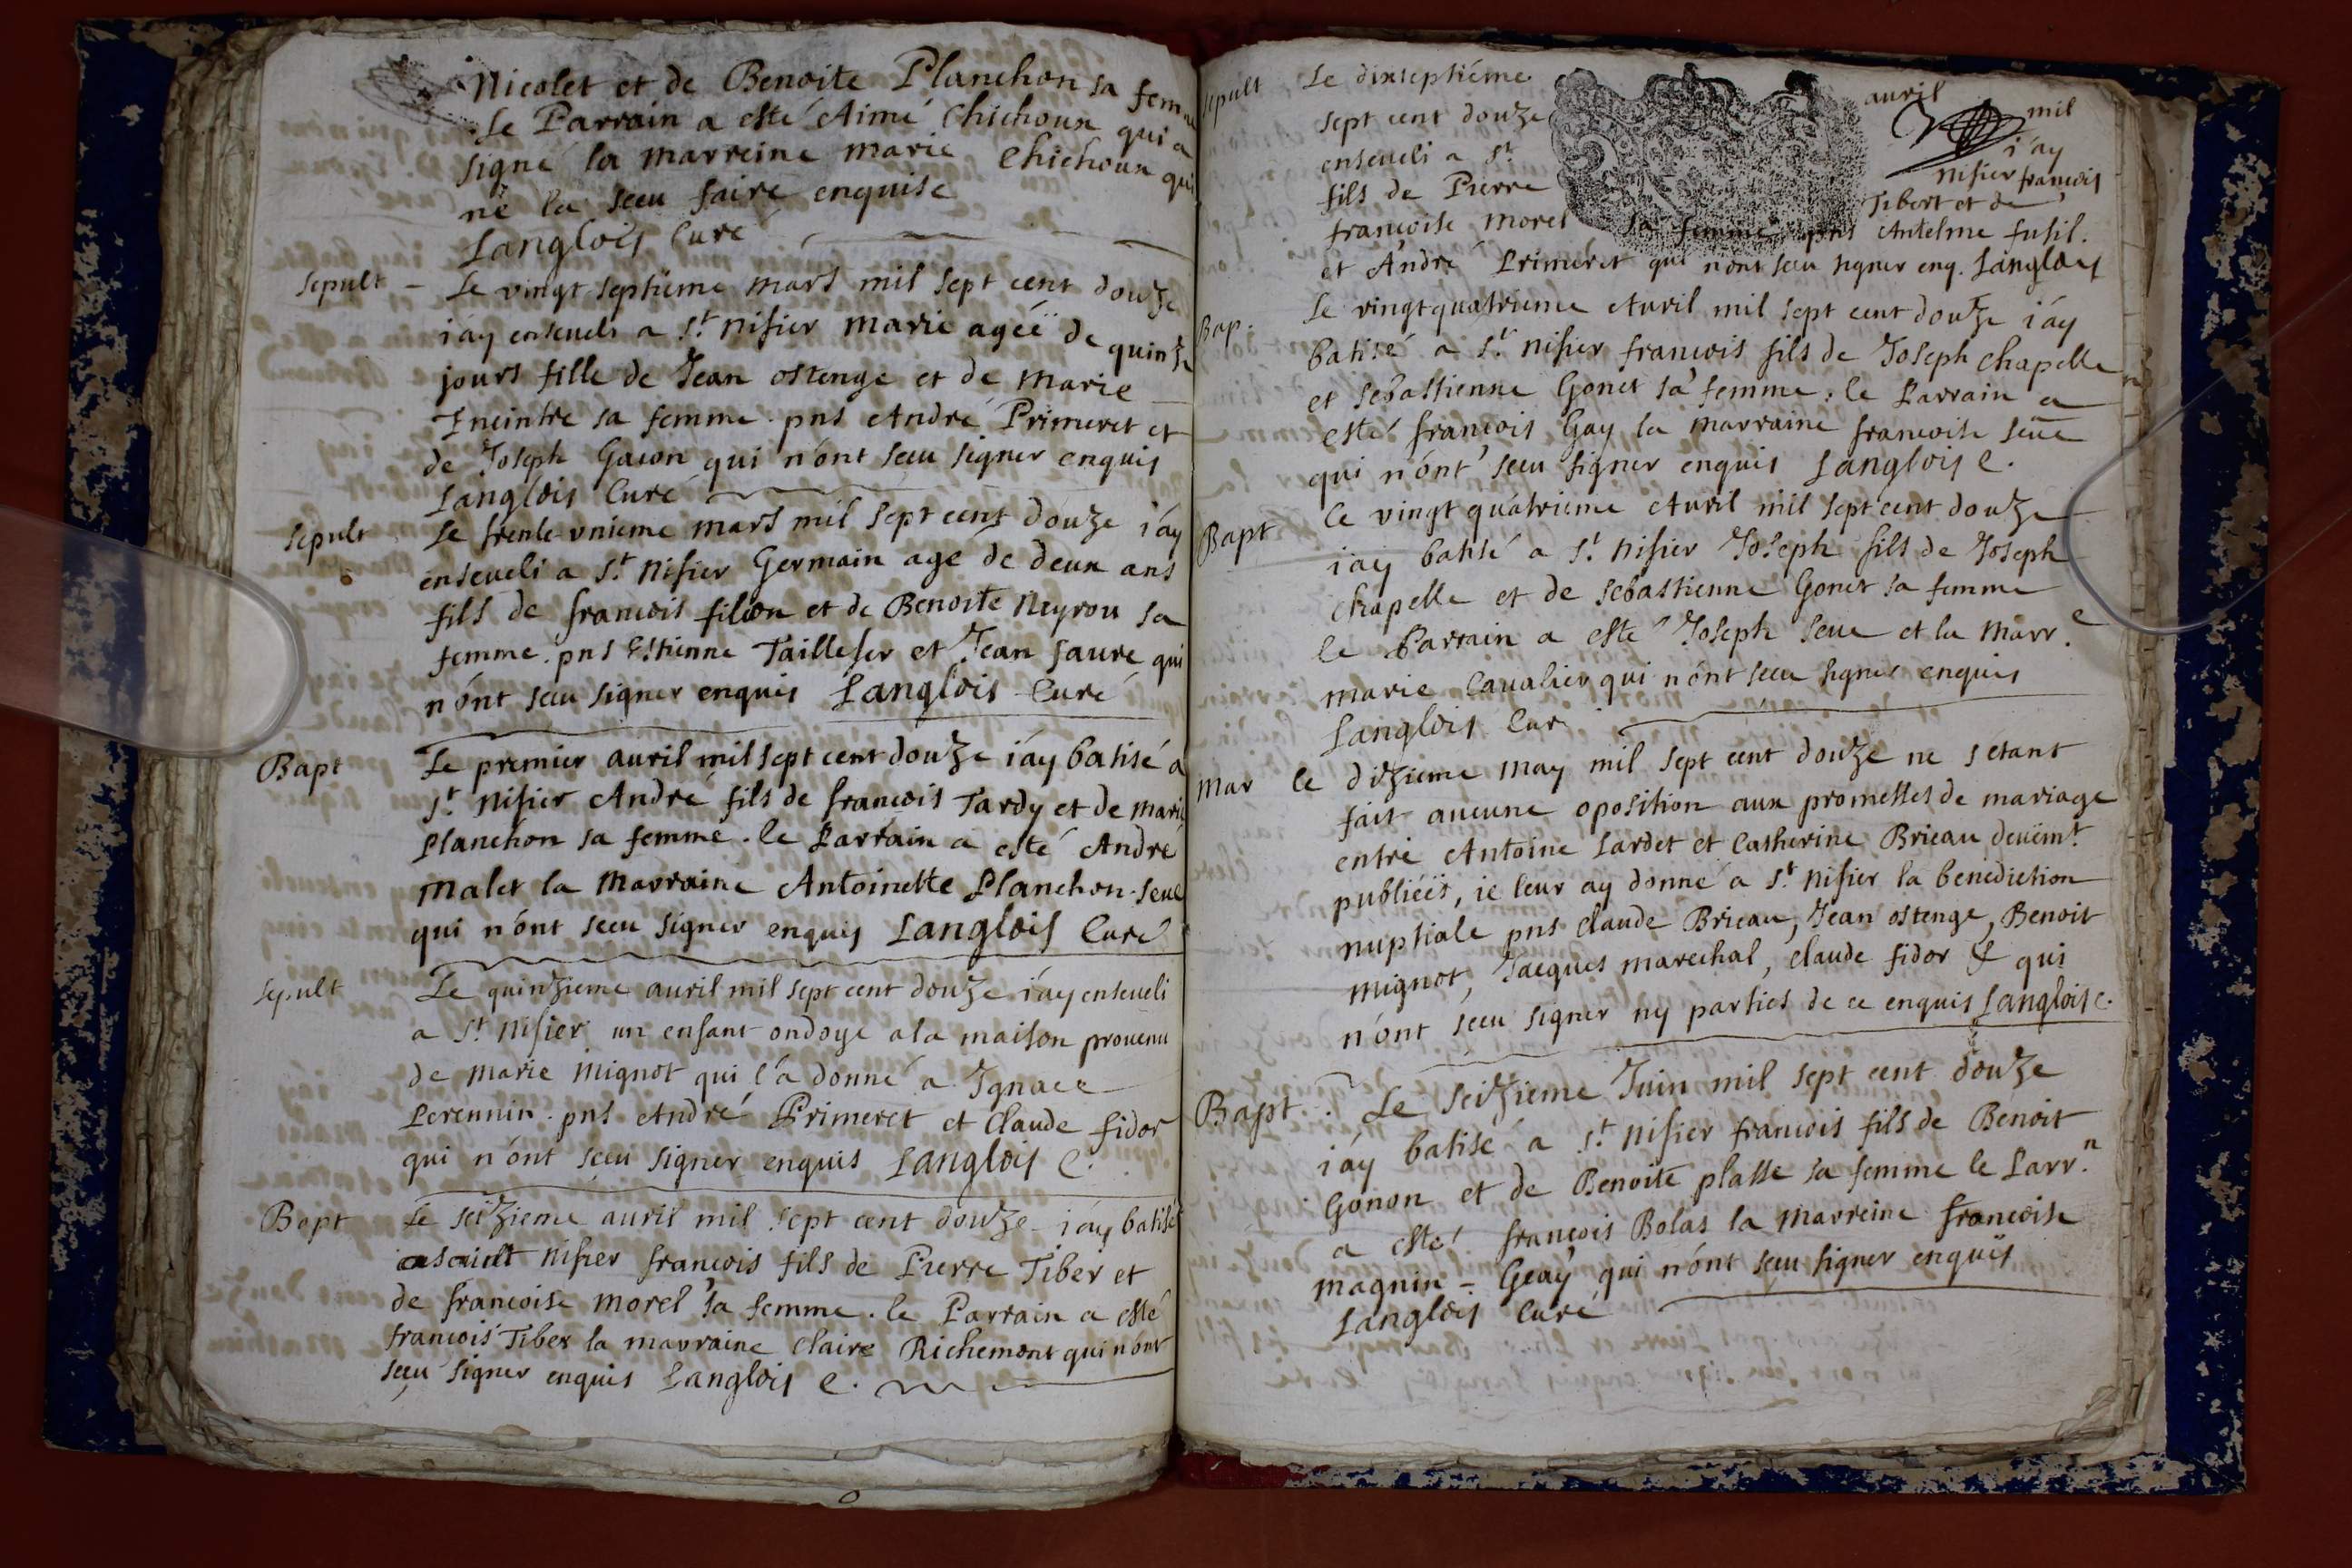 Nicolet et de Benoite Planchon sa femme
le Parrain a esté Aimé Chichoux qui a
signé la marreine marie Chichoux qui
ne la sceu faire enquise
Langlois Curé
sepult – Le vingt septième mars mil sept cent douze
i'ay enseveli a St nisier marie agéë de quinze
jours fille de Jean ostenge et de marie
sa femme pns André Primeret et
de Joseph Gacon qui n'ont sceu signer enquis
Langlois Curé
sepult Le trente-unieme mars mil sept cent douze i'ay
enseveli a St Nisier Germain agé de deux ans
fils de francois filion et de Benoite Neyrou sa
femme. pns Estienne Taillefer et Jean faure qui
n'ont sceu signer enquis Langlois Curé
Bapt Le premier avril mil sept cent douze i'ay batisé a
St Nisier André fils de francois Tardy et de marie
Planchon sa femme. le Parrain a esté André
malet la marraine Antoinette Planchon-seve
qui n'ont sceu signer enquis Langlois Curé
sepult Le quinzieme avril mil sept cent douze i'ay enseveli
a St Nisier un enfant ondoyé a la maison provenu
de marie mignot qui l'a donné a Ignace
Perennin. pns André Primeret et Claude fidor
qui n'ont sceu signer enquis Langlois C.
Bapt Le seizieme avril mil sept cent douze i'ay batisé
a saint nisier francois fils de Pierre Tiber et
de francoise morel sa femme. le Parrain a esté
francois Tiber la marraine Claire Richemont qui n'ont
sceu signer enquis Langlois C.
sepult Le dixseptiéme avril mil
sept cent douze i'ay
enseveli a St nisier francois
fils de Pierre Tibert et de
francoise morel sa femme pns Antelme fusil.
et André Primeret qui n'ont sceu signer enq. Langlois
Bap. Le vingtquatrieme Avril mil sept cent douze i'ay
batisé a St nisier francois fils de Joseph chapelle
et sebastienne Gonet sa femme. le Parrain a
esté francois Gay la marraine francoise seve
qui n'ont sceu signer enquis Langlois C.
Bapt Le vingt quatrieme Avril mil sept cent douze
i'ay batisé a St nisier Joseph fils de Joseph
chapelle et de sebastienne Gonet sa femme
le Parrain a esté Joseph seve et la Marr.e
marie Cavalier qui n'ont sceu signer enquis
Langlois Cur
Mar le dizieme may mil sept cent douze ne s'étant
fait aucune oposition aux promesses de mariage
entre Antoine Lardet et Catherine Brieau deuëmt.
publiéës, ie leur ay donné a St nisier la benediction
nuptiale pns claude Brieau, Jean ostenge, Benoit
mignot, Jacques marechal, claude fidor & qui
n'ont sceu signer ny parties de ce enquis Langlois C.
Bapt. Le seizieme Juin mil sept cent douze
i'ay batisé a St nisier francois fils de Benoit
Gonon et de Benoite plasse sa femme le Parr.n
a esté francois Bolas la marreine francoise
magnin = Geay qui n'ont sceu signer enquis
Langlois Curé